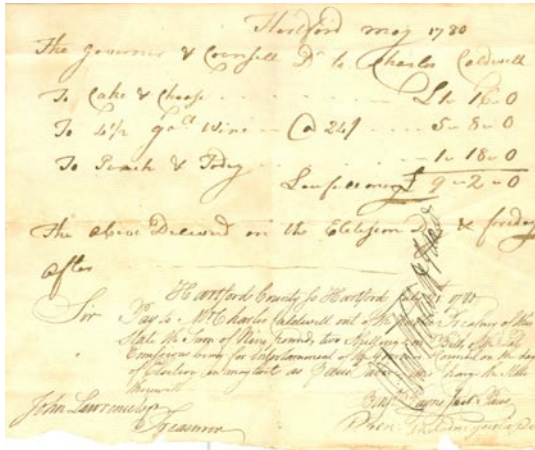 Hartford May 1780
The Governor & Counsell Dr to Charles Caldwell
To Cake & Cheese £1 16 0
To 4½ gall Wine @ 24/ 5 8 0
To Punch & Tody 1 18 0
Lawfull money £ 9 2 0
The above Delivered on the Election Day & friday
after
Hartford County Ss Hartford 1780
Sir Pay to Mr Charles Caldwell out of the Treasury of this
State the Sum of Nine pounds two Shillings in Bills of the
Emissions being for Entertainment of the Governor & Council on the day
of Election in may last as and Charge the State
therewith
John Lawrence Esqr
Treasurer
Payne